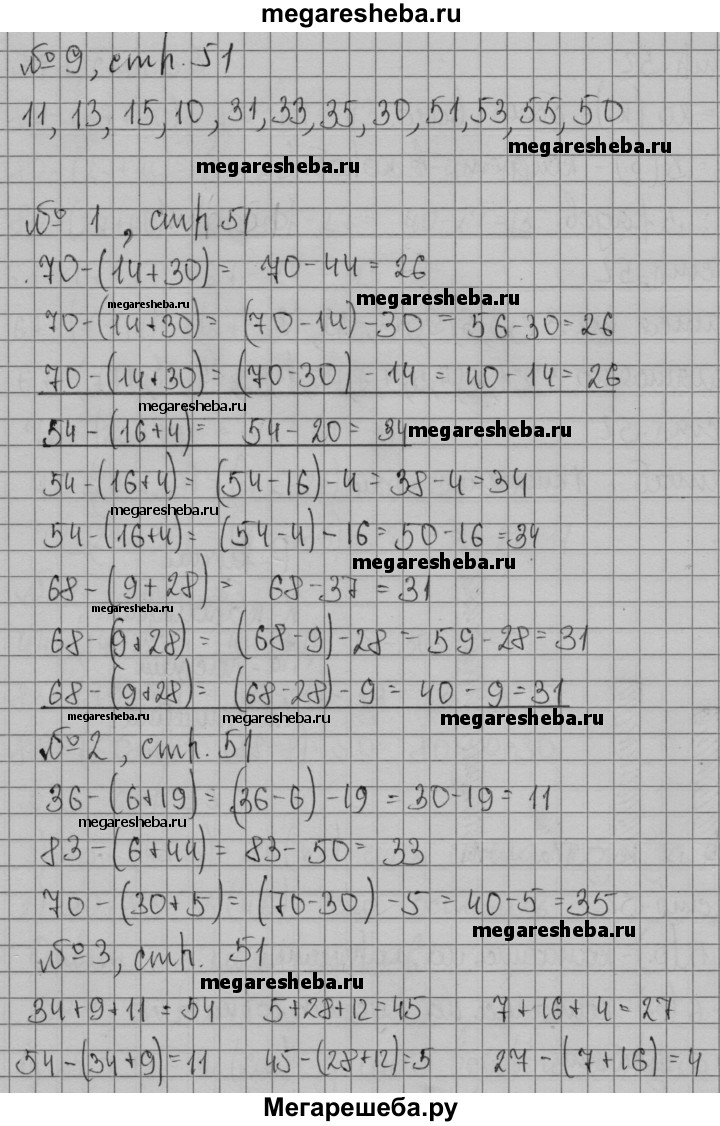 megaresheba.ru
№ 9, стр. 51
11, 13, 15, 10, 31, 33, 35, 30, 51, 53, 55, 50
megaresheba.ru
megaresheba.ru
№ 1, стр 51
70-(14+30) = 70-44 = 26
megaresheba.ru
megaresheba.ru
70-(14+30) = (70-14)-30 = 56-30=26
70-(14+30) = (70-30) - 14 = 40-14=26
megaresheba.ru
54-(16+4)= 54-20= 34
megaresheba.ru
54-(16+4) = (54-16)-4=38-4=34
megaresheba.ru
54-(16+4)= (54-4)-16=50-16=34
megaresheba.ru
68-(9+28) = 68-37=31
megaresheba.ru
68-(9+28) = (68-9)-28 = 59-28=31
68-(9+28)= (68-28)-9 = 40-9=31
megaresheba.ru
megaresheba.ru
megaresheba.ru
№2, стр. 51
36-(6+19)= (36-6)-19 = 30-19= 11
megaresheba.ru
83-(6+44)= 83-50= 33
70-(30+5)=(70-30)-5=40-5=35
megaresheba.ru
№3, стр. 51
megaresheba.ru
34+9+11=54 5+28+12=45 7+16+4=27
54-(34+9)=11 45-(28+12)=5 27-(7+16)=4
Мегарешеба.ру